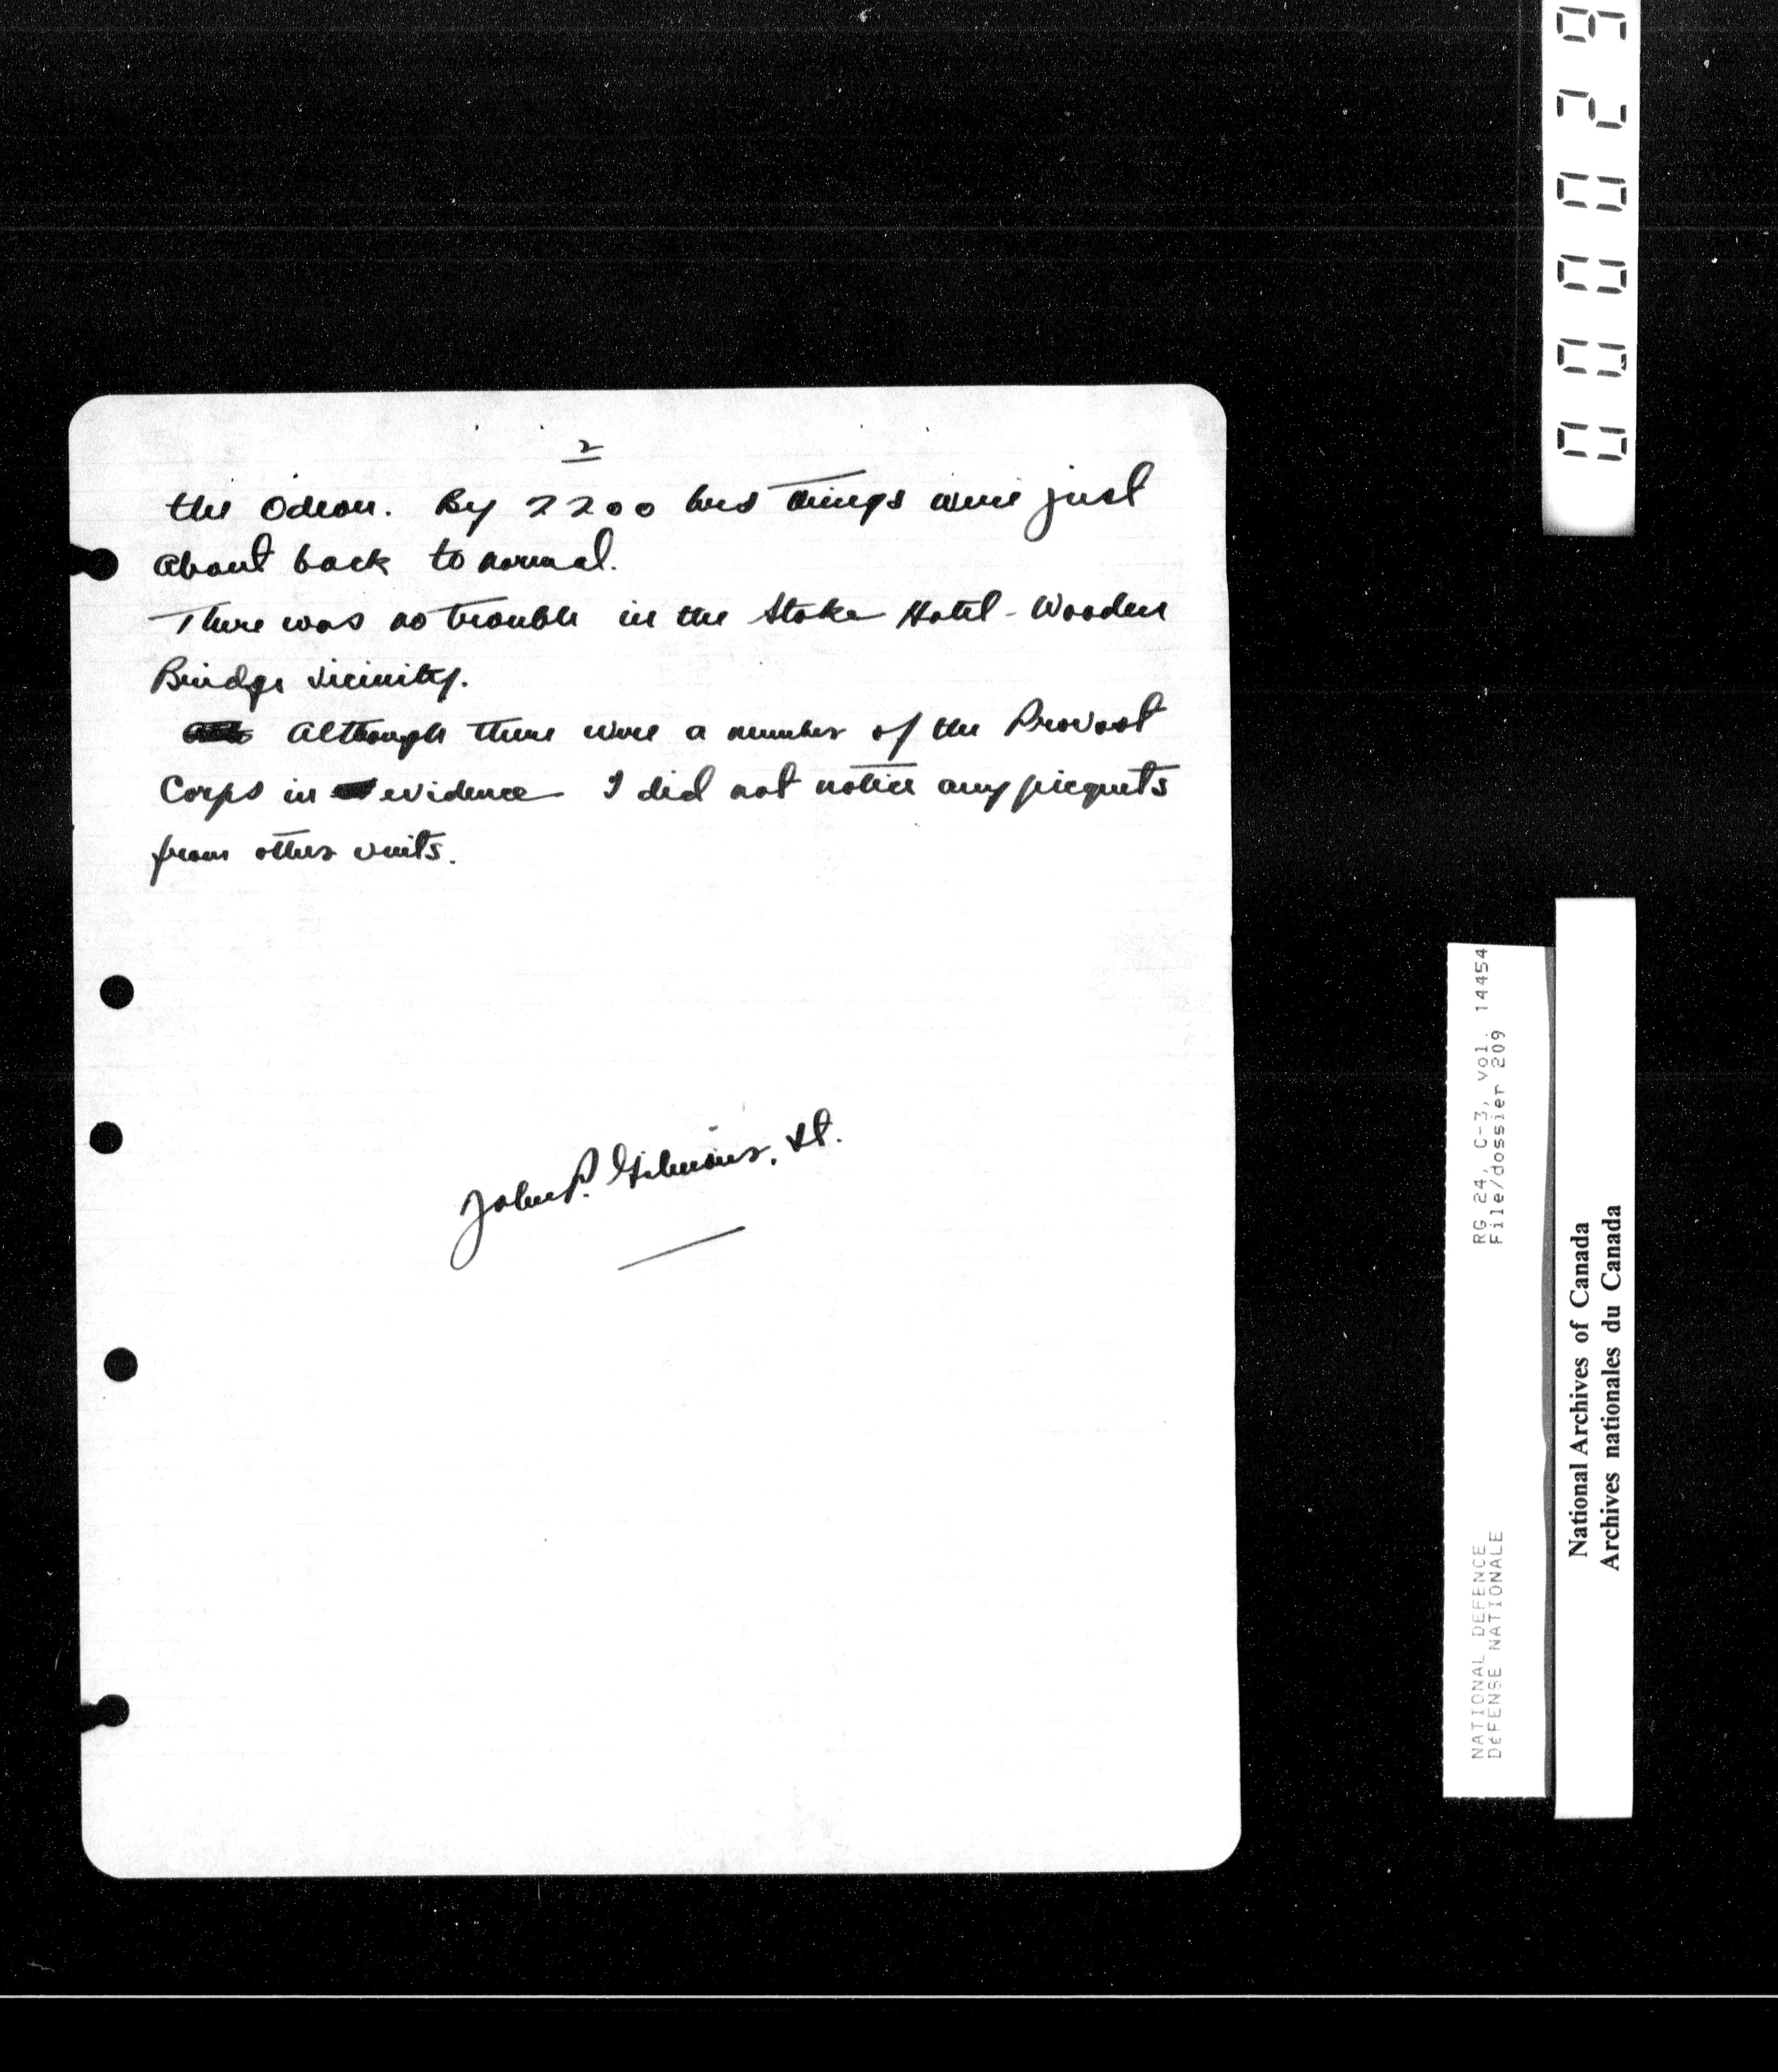 2
the Odeon. By 2200 hrs things were just
about back to normal.
There was no trouble in the Stoke Hotel - Wooden
Bridge vicinity.
Although there were a number of the Provost
Corps in evidence I did not notice any picquets
from other units.
John P. Gilmour, Lt.
000029
RG 24, C-3, Vol. 14454
File/dossier 209
NATIONAL DEFENCE
DéFENSE NATIONALE
National Archives of Canada
Archives nationales du Canada